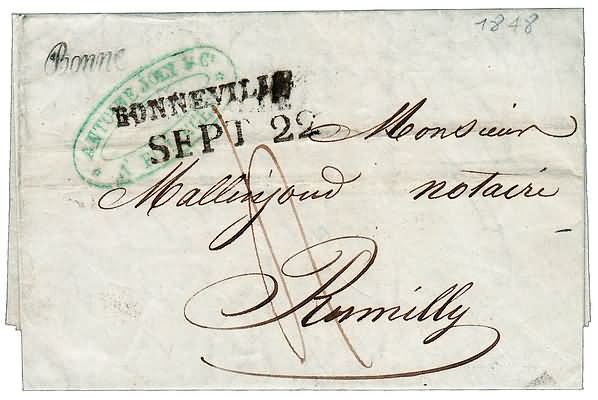 1848
Bonne
ANTOINE JOLY & Cie
A
BONNEVILLE
SEPT 22
Monsieur
Mallinjoud notaire
Rumilly